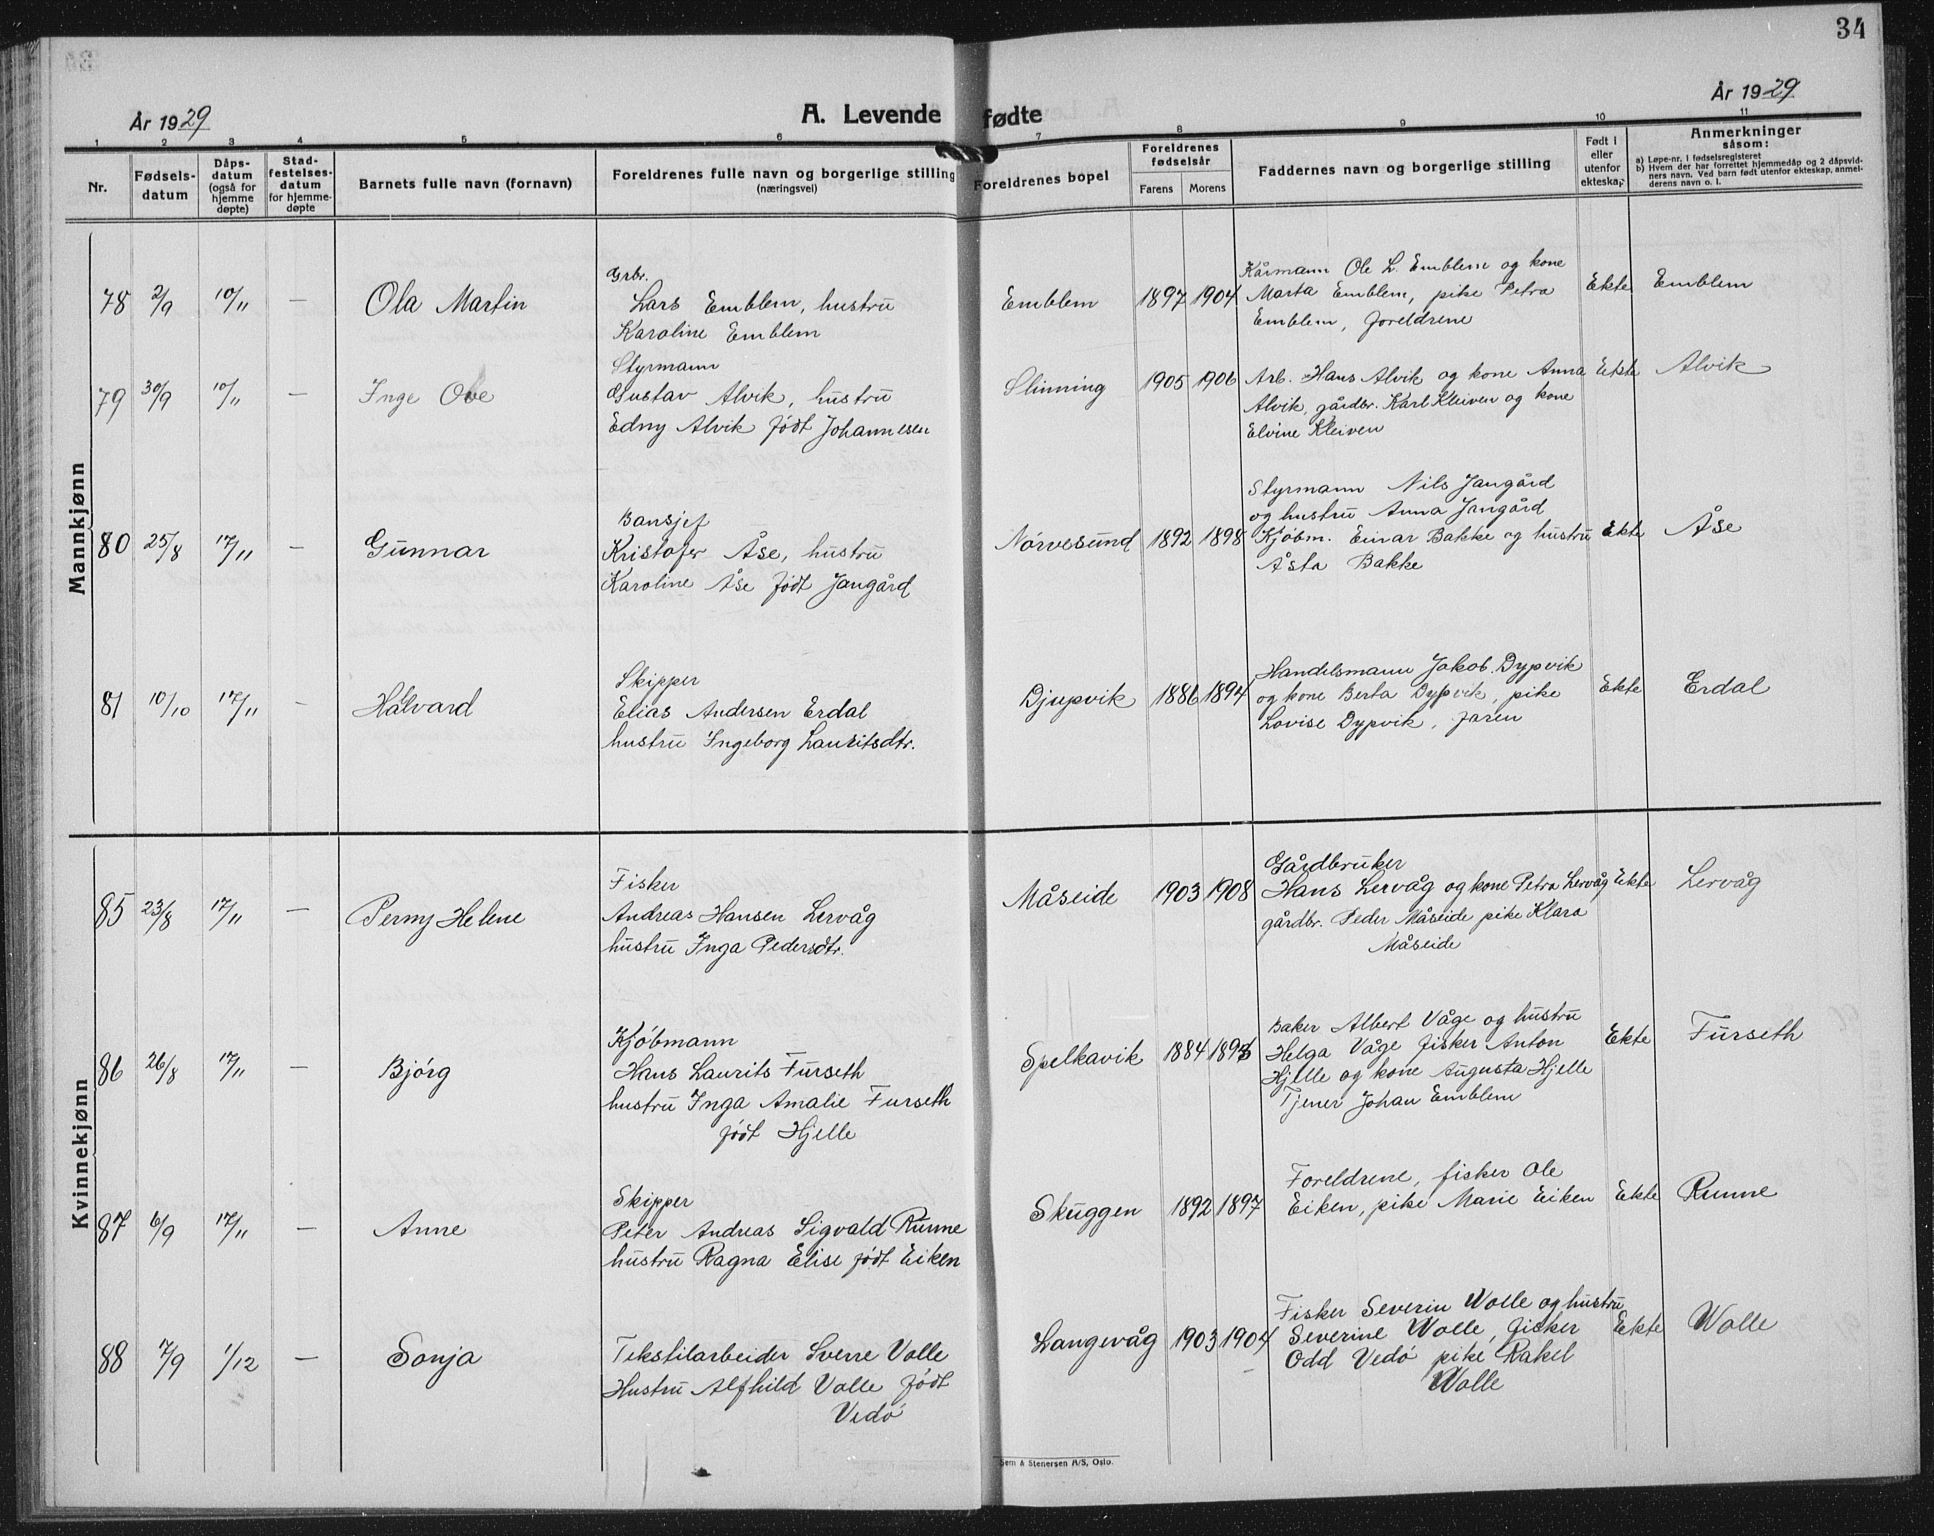 34
År 1929
A. Levende fødte
År 1929
1 2 3 4 5 6 7 8 9 10 11
Nr.
Fødsels-
datum
Dåps-
datum
(også for
hjemme
døpte)
Stad-
festelses-
datum
for hjemme-
døpte
Barnets fulle navn (fornavn)
Foreldrenes fulle navn og borgerlige stilling
(næringsvei)
Foreldrenes bopel
Foreldrenes
fødselsår
Farens
Morens
Faddernes navn og borgerlige stilling
Født i
eller
utenfor
ekteskap
Anmerkninger
såsom:
a) Løpe-nr. i fødselsregisteret
b) Hvem der har forrettet hjemmedåp og 2 dåpsvid-
ners navn. Ved barn født utenfor ekteskap, anmel-
derens navn o. l.
Mannkjønn
78 2/9 10/11 — Ola Martin
Grbr.
Lars Emblem, hustru
Karoline Emblem
Emblem 1897 1904
Kårmann Ole L. Emblem og kone
Marta Emblem, pike Petra
Emblem, foreldrene
Ekte Emblem
79 30/9 10/11 — Inge Ove
Styrmann
Gustav Alvik, hustru
Edny Alvik født Johannesen
Slinning 1905 1906
Arb. Hans Alvik og kone Anna
Alvik, gårdbr. Karl Kleiven og kone
Elvine Kleiven
Ekte Alvik
80 25/8 17/11 — Gunnar
Bansjef
Kristofer Åse, hustru
Karoline Åse født Jangård
Nørvesund 1892 1898
Styrmann Nils Jangård
og hustru Anna Jangård
Kjøbm. Einar Bakke og hustru
Åsta Bakke
Ekte Åse
81 10/10 17/11 — Halvard
Skipper
Elias Andersen Erdal
hustru Ingeborg Lauritsdtr.
Djupvik 1886 1894
Handelsmann Jakob Dypvik
og kone Berta Dypvik, pike
Lovise Dypvik, faren
Ekte Erdal
Kvinnekjønn
85 23/8 17/11 — Perny Helene
Fisker
Andreas Hansen Lervåg
hustru Inga Pedersdtr.
Måseide 1903 1908
Gårdbruker
Hans Lervåg og kone Petra Lervåg
gårdbr. Peder Måseide pike Klara
Måseide
Ekte Lervåg
86 26/8 17/11 — Bjørg
Kjøbmann
Hans Laurits Furseth
hustru Inga Amalie Furseth
født Hjelle
Spelkavik 1884
Baker Albert Våge og hustru
Helga Våge fisker Anton
Hjelle og kone Augusta Hjelle
Tjener Johan Emblem
Ekte Furseth
87 6/9 17/11 — Anne
Skipper
Peter Andreas Sigvald Runne
hustru Ragna Elise født Eiken
Skuggen 1892 1897
Foreldrene, fisker Ole
Eiken, pike Marie Eiken
Ekte Runne
88 7/9 1/12 — Sonja
Tekstilarbeider Sverre Valle
Hustru Alfhild Valle født
Vedø
Langevåg 1903 1904
Fisker Severin Wolle og hustru
Severine Wolle, fisker
Odd Vedø pike Rakel
Wolle
Ekte Wolle
Sem & Stenersen A/S, Oslo.